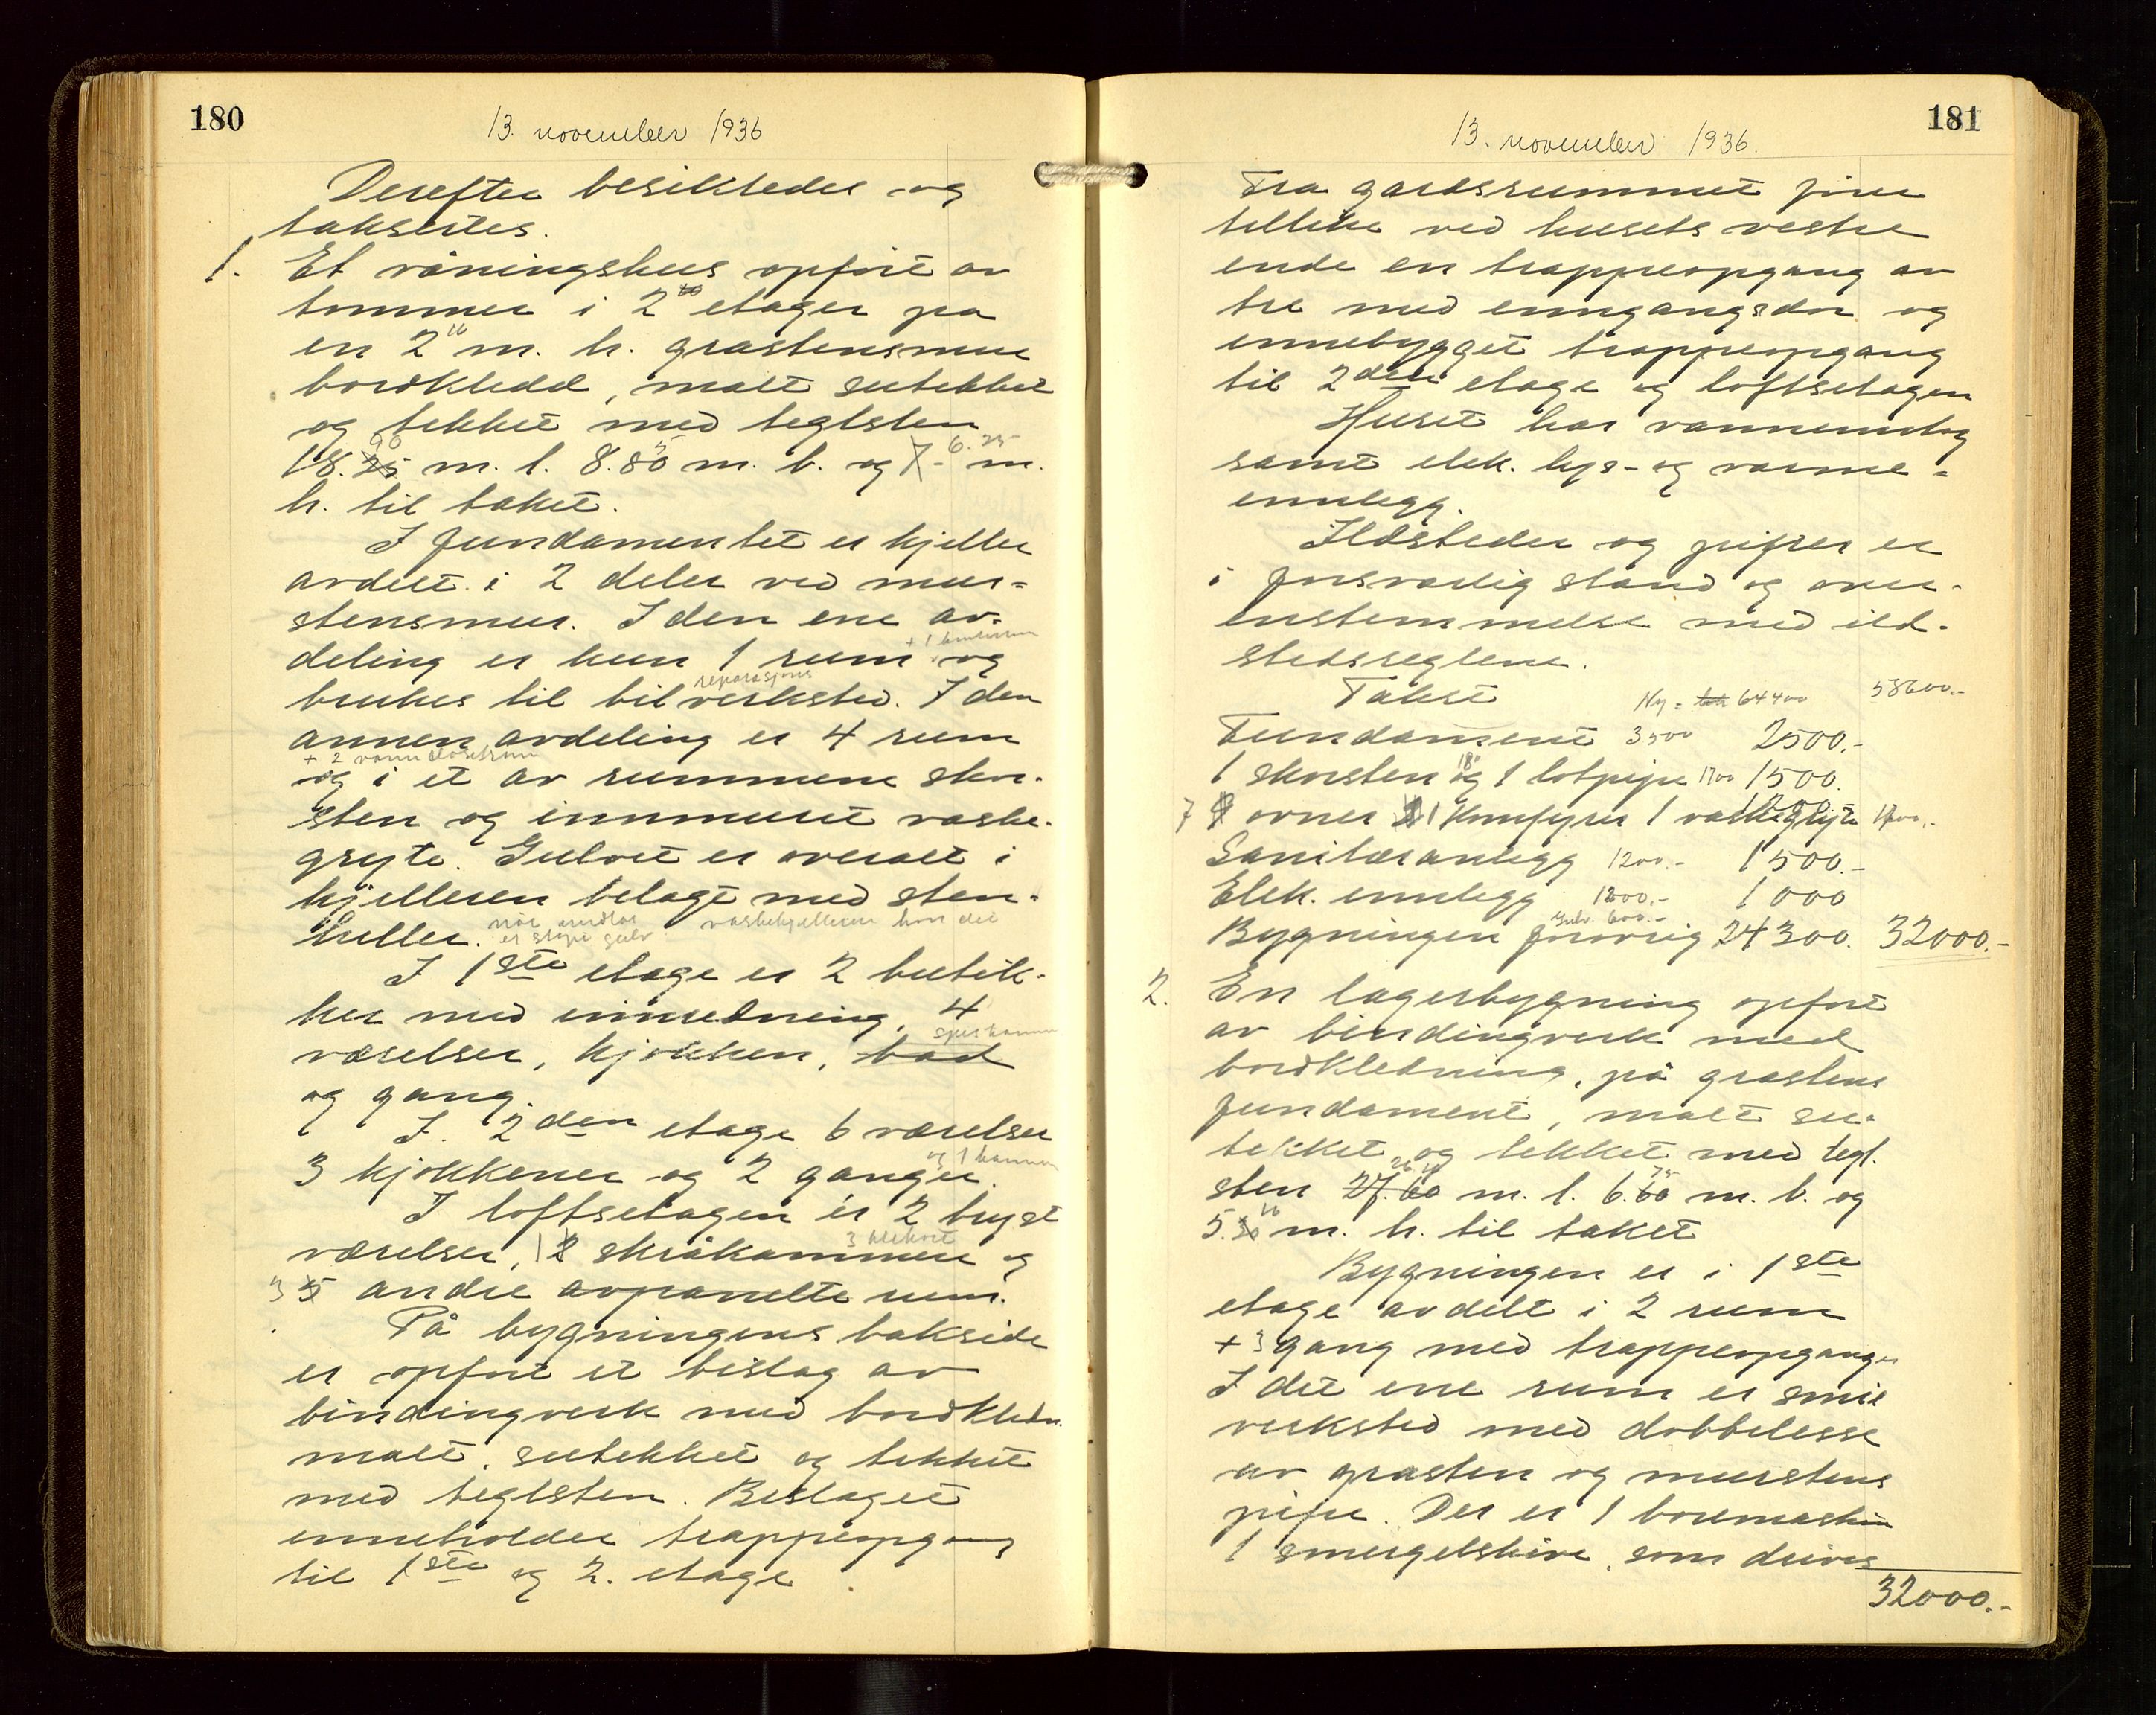 180
13. november 1936
Derefter besiktedes og
taksertes.
1. Et våningshus opført av
tømmer i 2 etager på
en 2 m. h. gråstensmur
bordkledd, malt sutekket
og tekket med teglsten
90 5 6.25
18.35 m. l. 8.80 m. b. og 7- m.
h. til taket.
I fundamentet er kjeller
avdelt i 2 deler ved mur=
stensmur. I den ene av-
deling er kun 1 rum og
reparasjons
brukes til bilverksted. I den
annen avdeling er 4 rum
+ 2 vannklosettrum
og i et av rummene skor-
sten og innmuret vaske-
gryte. Gulvet er overalt i
kjelleren belagt med sten-
heller.
vaskekjelleren hvor det
er støpt gulv
I 1ste etage er 2 butik-
ker med innredning, 4
spiskammer
værelser, kjøkken, bad
og gang.
I 2den etage 6 værelser
og 1 kammer
3 kjøkkener og 2 ganger.
I loftsetagen er 2 kvist
værelser, 1 2 skråkammere og
3 5 andre avpanelte rum.
På bygningens bakside
er opført et bislag av
bindingverk med bordkledn.
malt, sutekket og tekket
med teglsten. Bislaget
inneholder trappeopgang
til 1ste og 2. etage.
181
13. november 1936.
Fra gårdsrummet fører
tillike ved husets vestre
ende en trappeopgang av
tre med inngangsdør og
innebygget trappeopgang
til 2den etage og loftsetagen
Huset har vanninnlegg
samt elek. lys- og varme=
innlegg.
Ildsteder og piper er
i forsvarlig stand og over-
enstemmelse med ild-
stedsreglene.
Takst Ny = 64400 58600.-
Fundament 3500 2500.-
1 skorsten og 1 lotpipe 1700 1500.
7 ovner 1 komfyrer 1 vaskegryte 1200.-
Sanitæranlegg 1200.- 1500.-
Elek. innlegg 1200.- 1000
gulv 600.-
Bygningen forøvrig 24300. 32000.-
2. En lagerbygning opført
av bindingverk med
bordkledning, på gråstens
fundament, malt su-
tekket og tekket med tegl.
sten 27.60 m. l. 6.60 m. b. og
5.30 m. h. til taket
Bygningen er i 1ste
etage avdelt i 2 rum
+ 3 gang med trappeopganger
I det ene rum er smie
verksted med dobbelesse
av gråsten og murstens
pipe. Der er 1 boremaskin
1 smergelskive, som drives
32000.-